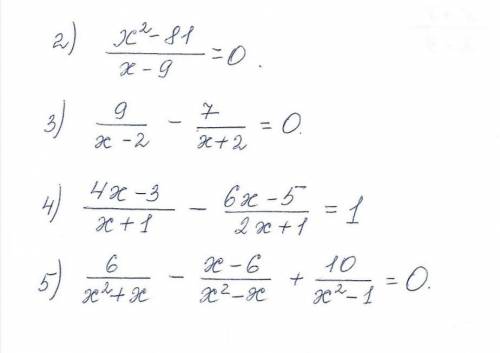 2) \frac{x^2-81}{x-9} = 0.
3) \frac{9}{x-2} - \frac{7}{x+2} = 0.
4) \frac{4x-3}{x+1} - \frac{6x-5}{2x+1} = 1
5) \frac{6}{x^2+x} - \frac{x-6}{x^2-x} + \frac{10}{x^2-1} = 0.